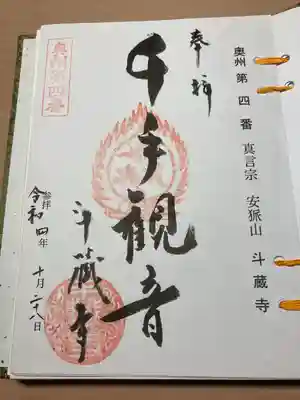 奥州 第四番 真言宗 安狐山 斗蔵寺
奉拝
千手観音
斗蔵寺
奥州第四番
参拝
令和四年 十月 二十八日